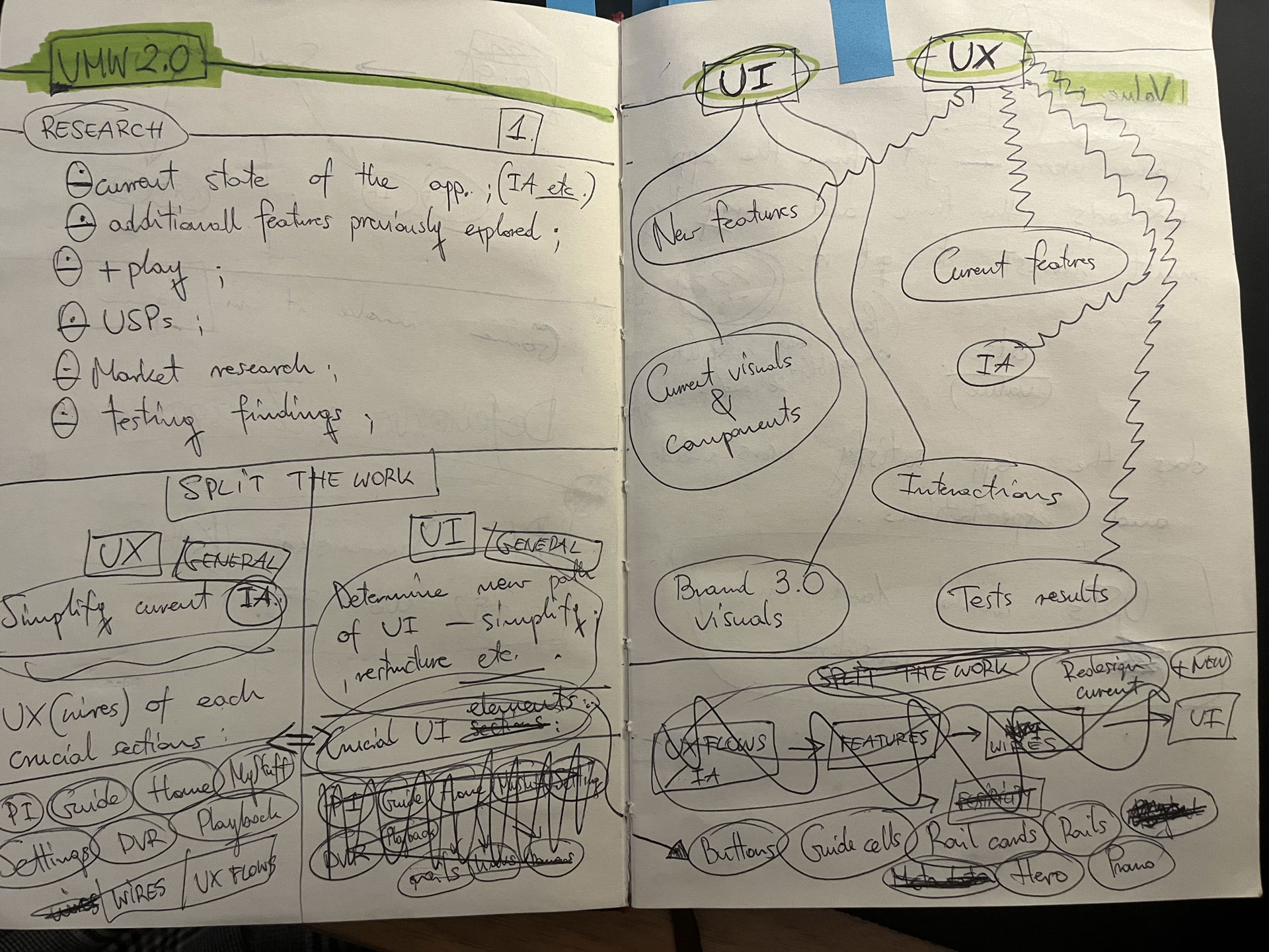 VMW 2.0
RESEARCH
1.
current state of the app.; (IA etc.)
additionall features previously explored;
+play;
USPs;
Market research;
testing findings;
SPLIT THE WORK
UX / GENERAL
Simplify current IA.
UX (wires) of each
crucial sections:
PI Guide Home MyStuff
Settings DVR Playback
wires WIRES / UX FLOWS
UI / GENERAL
Determine new path
of UI — simplify;
, restructure etc.
elements:
Crucial UI sections:
PI Guide Home MyStuff Setting
DVR Playback
UI
UX
New features
Current features
Current visuals
&
components
IA
Interactions
Brand 3.0
visuals
Tests results
SPLIT THE WORK
Redesign
current
+NEW
UX FLOWS
IA
FEATURES
WIRES
UI
Buttons Guide cells Rail cards Rails
Meta data Hero Promo